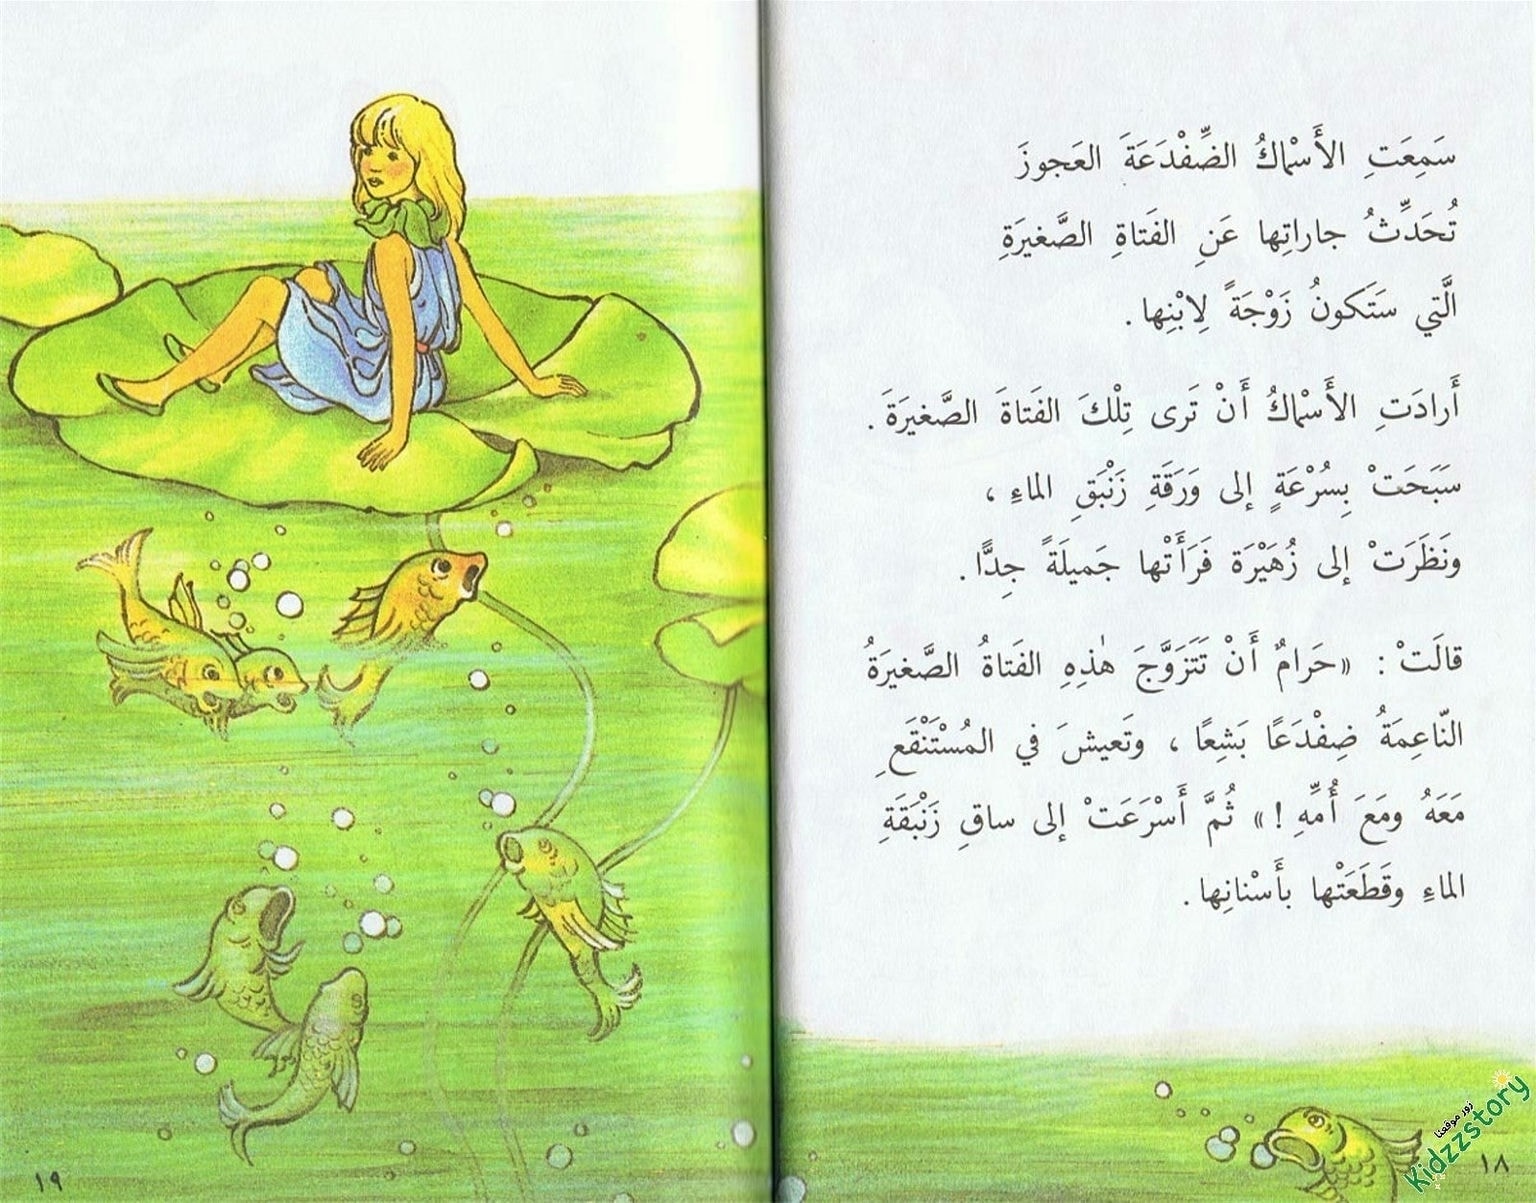 سَمِعَتِ الأَسْماكُ الضِّفْدَعَةَ العَجوزَ
تُحَدِّثُ جاراتِها عَنِ الفَتاةِ الصَّغيرَةِ
الَّتي سَتَكونُ زَوْجَةً لِابْنِها .
أَرادَتِ الأَسْماكُ أَنْ تَرى تِلْكَ الفَتاةَ الصَّغيرَةَ .
سَبَحَتْ بِسُرْعَةٍ إلى وَرَقَةِ زَنْبَقِ الماءِ ،
ونَظَرَتْ إلى زُهَيْرَة فَرَأَتْها جَميلَةً جِدًّا .
قالَتْ : «حَرامٌ أَنْ تَتَزَوَّجَ هٰذِهِ الفَتاةُ الصَّغيرَةُ
النّاعِمَةُ ضِفْدَعًا بَشِعًا ، وتَعيشَ في المُسْتَنْقَعِ
مَعَهُ ومَعَ أُمِّهِ !» ثُمَّ أَسْرَعَتْ إلى ساقِ زَنْبَقَةِ
الماءِ وقَطَعَتْها بأَسْنانِها .
١٨
زور موقعنا
Kidzzstory
١٩